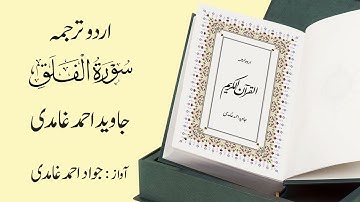 اردو ترجمہ
سُوْرَةُ الْفَلَق
جاوید احمد غامدی
آواز : جواد احمد غامدی
اردو ترجمہ
القرآن الکریم
جاوید احمد غامدی